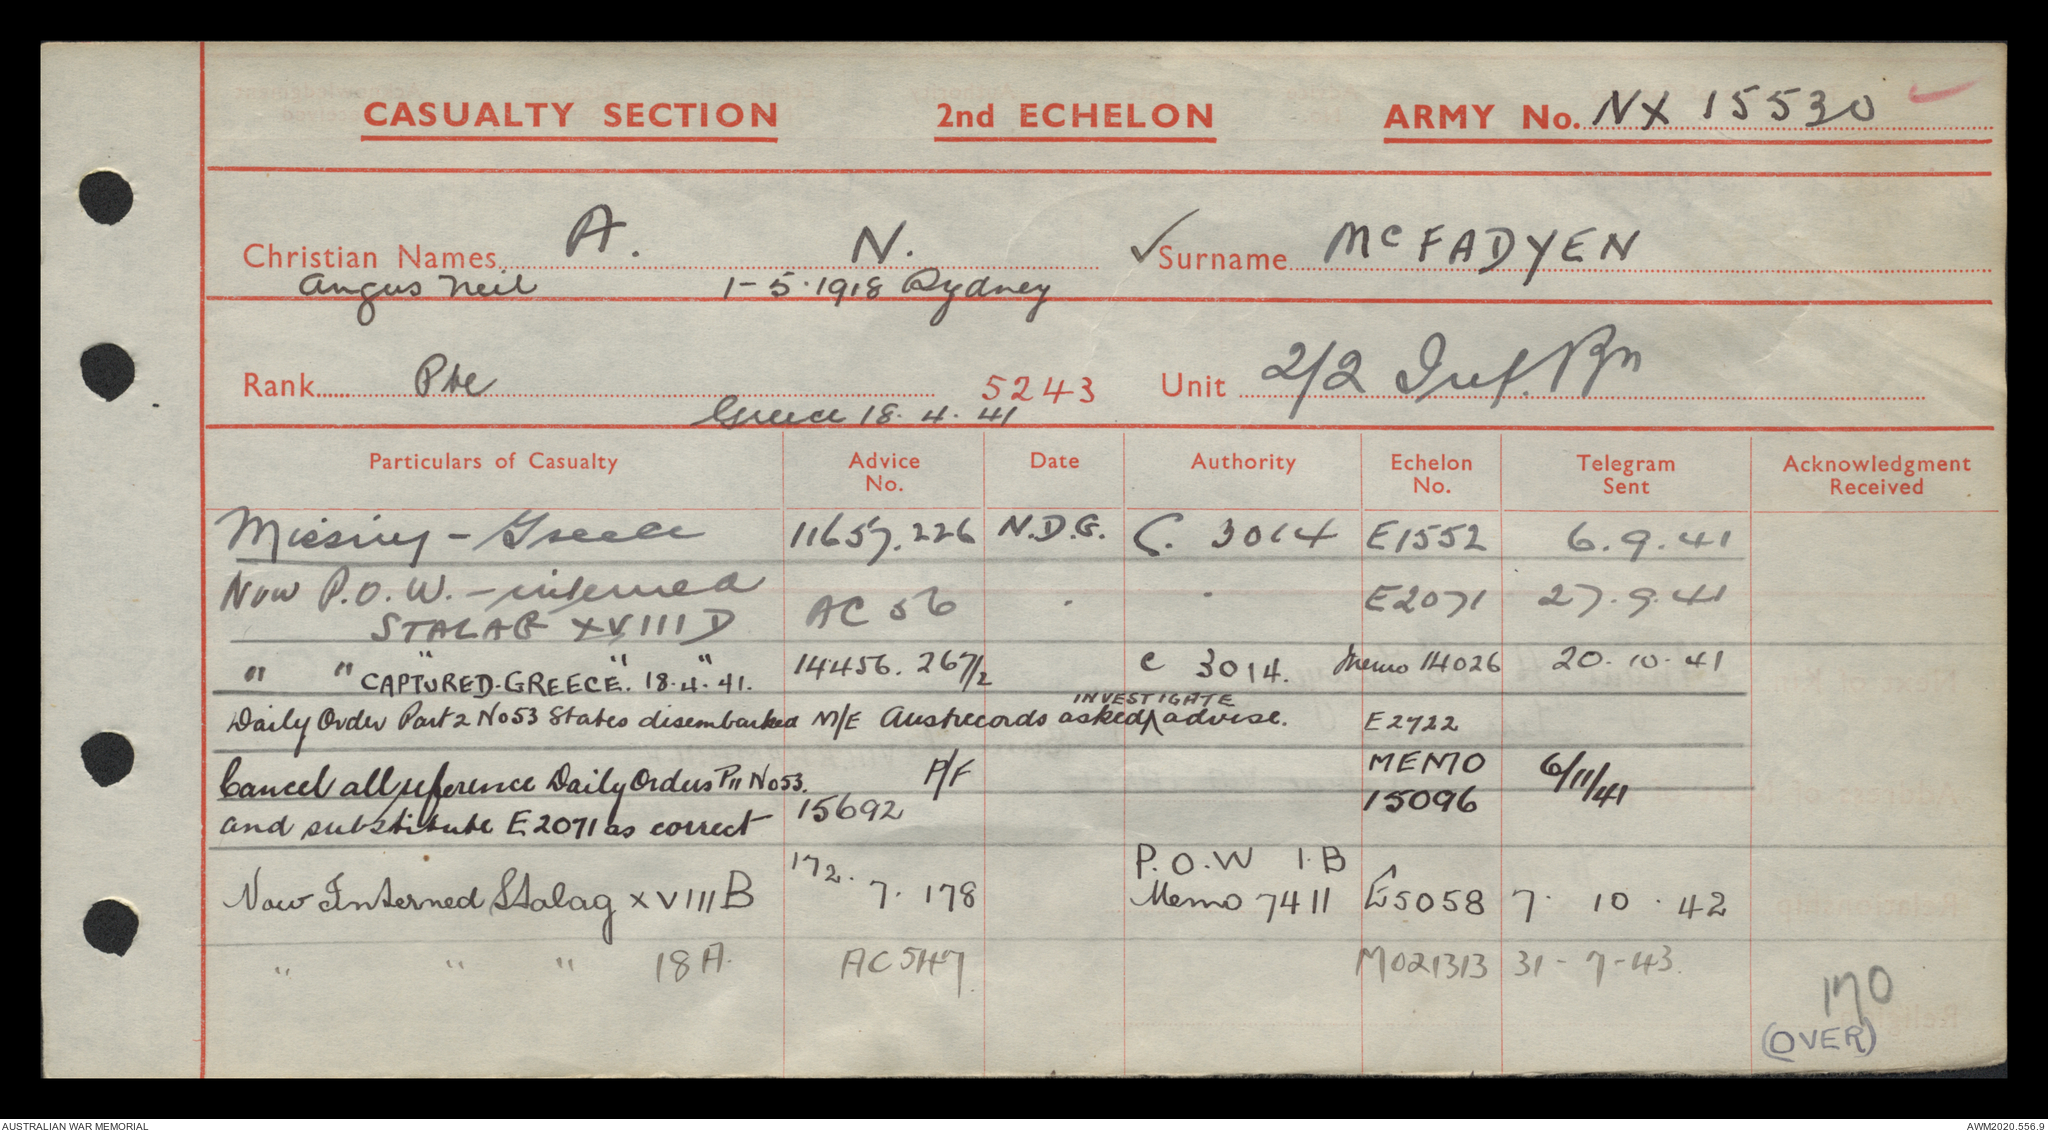 CASUALTY SECTION 2nd ECHELON ARMY No. NX 15530
Christian Names A. N. Surname McFADYEN
Angus Neil 1-5-1918 Sydney
Rank Pte 5243 Unit 2/2 Inf. Bn
Greece 18.4.41
Particulars of Casualty Advice No. Date Authority Echelon No. Telegram Sent Acknowledgment Received
Missing - Greece 11657.226 N.D.G. C. 3014 E1552 6.9.41
Now P.O.W. - interned AC 56 E2071 27.9.41
STALAG XVIIID
" " " " "
CAPTURED-GREECE. 18.4.41. 14456. 267/2 C 3014. Memo 14026 20.10.41
INVESTIGATE
Daily Order Part 2 No53 States disembarked M/E Ausrecords asked ^ advise. E2722
Cancel all reference Daily Orders P11 No53. P/F MEMO 6/11/41
and substitute E2071 as correct 15692 15096
172. P.O.W 1.B
Now Interned Stalag XVIIIB 7.178 Memo 7411 E5058 7.10.42
" " " 18A. AC 547 M021313 31-7-43.
170
(OVER)
AUSTRALIAN WAR MEMORIAL AWM2020.556.9